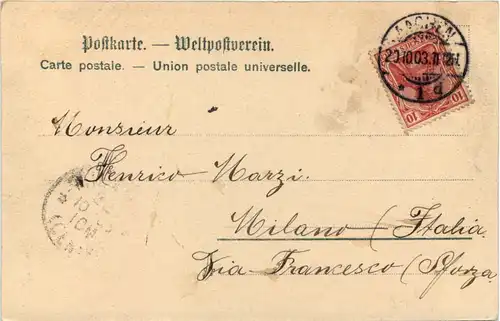 Postkarte. — Weltpostverein.
Carte postale. — Union postale universelle.
AACHEN
20.10.03.
1 d
10 10
Monsieur
Henrico Marzi.
Milano (Italia
Via Francesco (Sforza